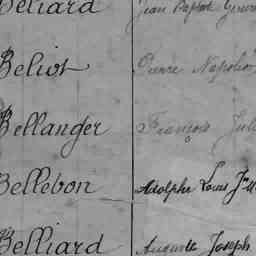 Beliard Jean Baptiste
Beliot Pierre Napoléon
Bellanger François Jule
Bellebon Adolphe Louis Jh
Belliard Auguste Joseph